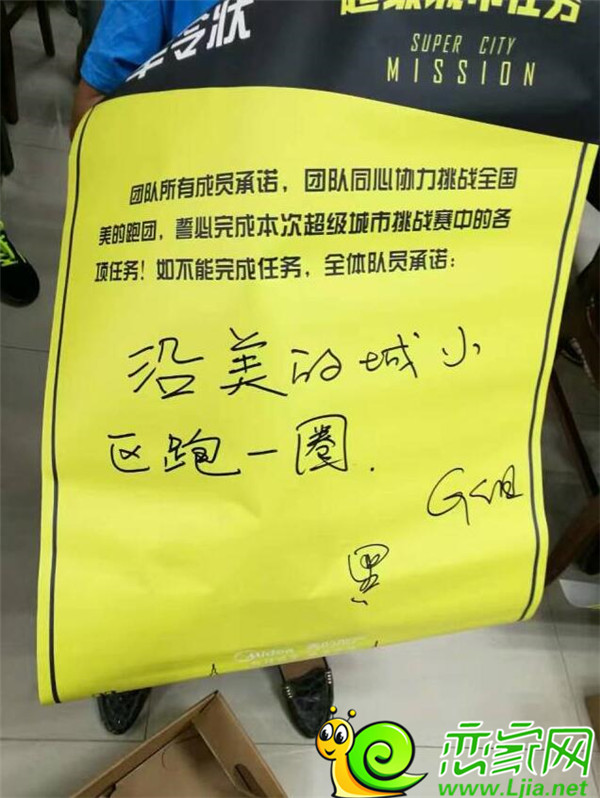 军令状
超级城市任务
SUPER CITY
MISSION
团队所有成员承诺，团队同心协力挑战全国
美的跑团，誓必完成本次超级城市挑战赛中的各
项任务！如不能完成任务，全体队员承诺：
沿美的城小
区跑一圈.
G组
Midea
恋家网
www.Ljia.net